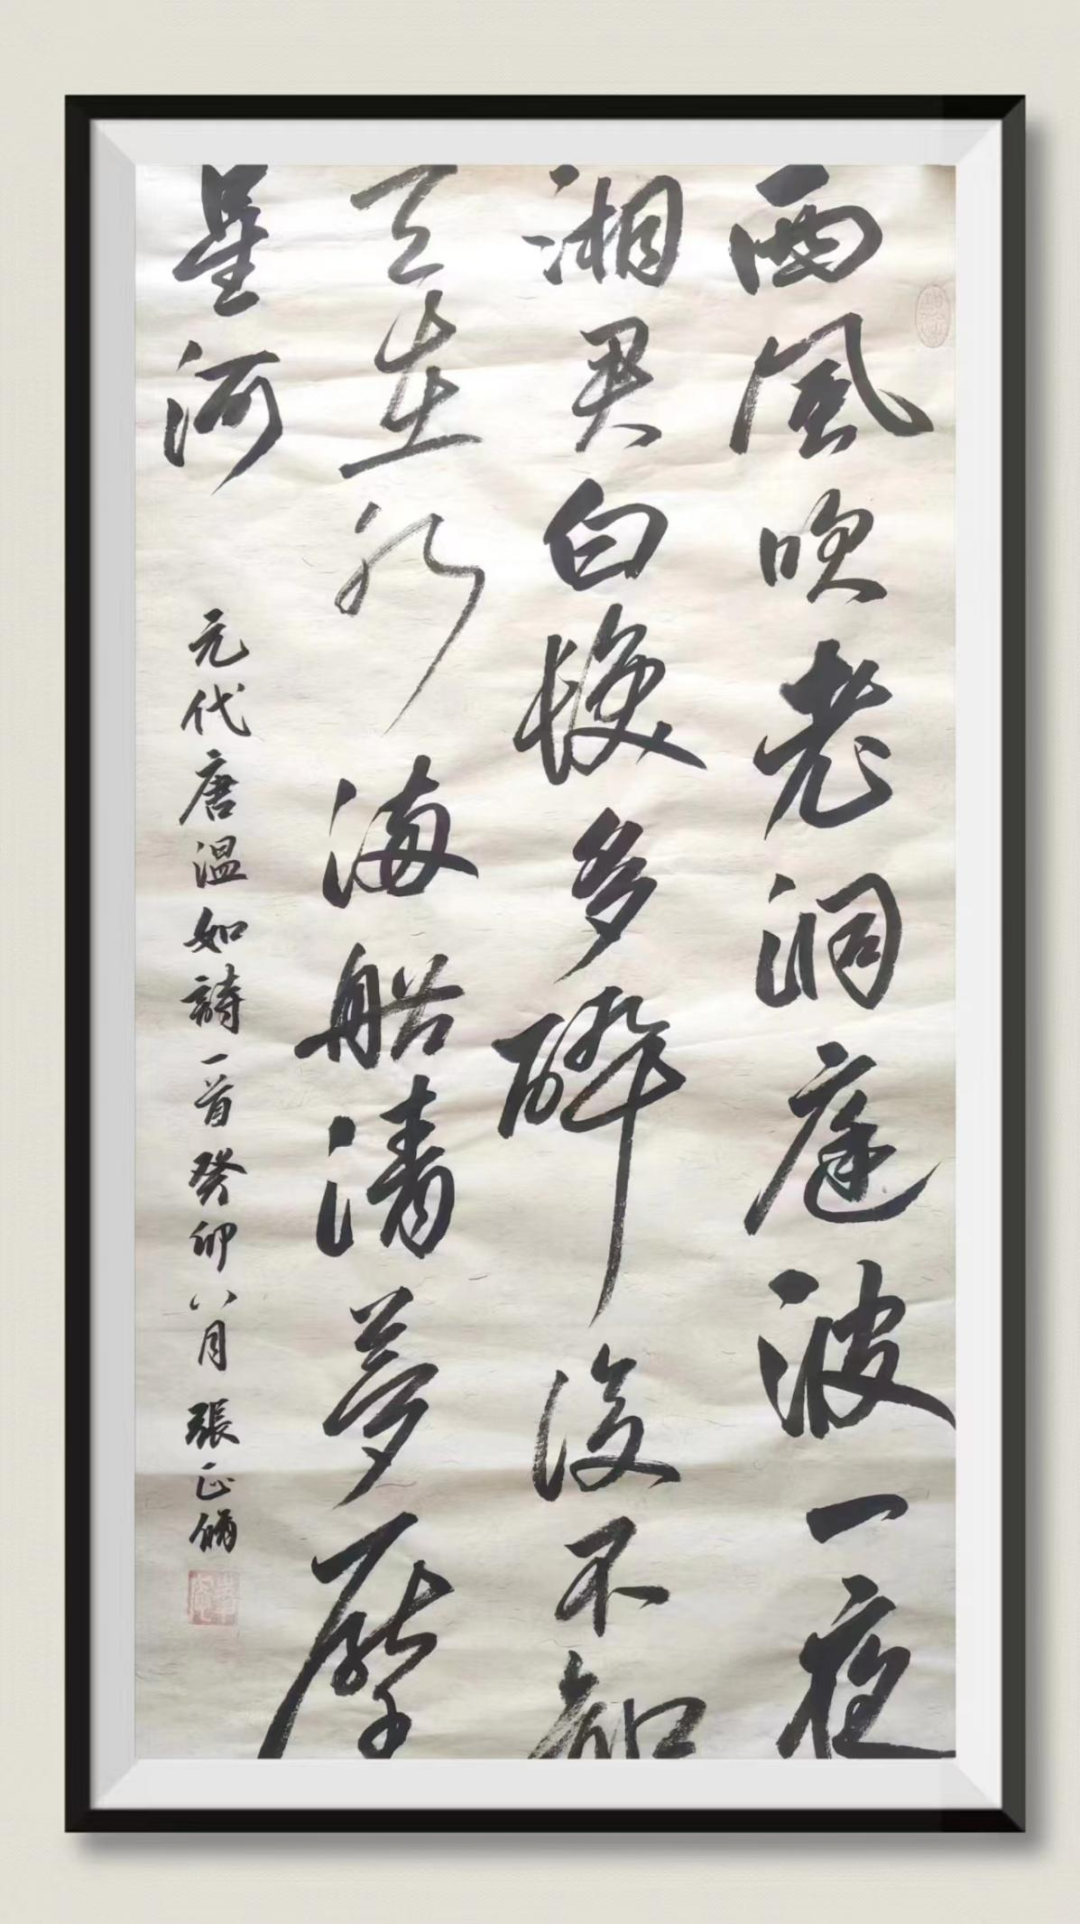 西風吹老洞庭波一夜
湘君白髮多醉後不知
天在水滿船清夢壓
星河
元代唐温如詩一首癸卯八月張正